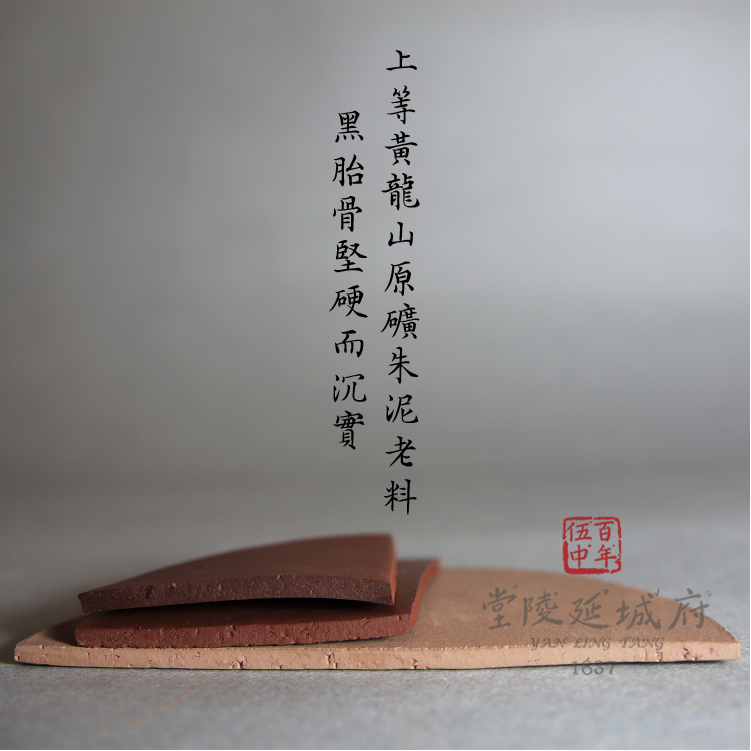 上等黃龍山原礦朱泥老料
黑胎骨堅硬而沉實
百年
伍中
府城延陵堂
YAN LING TANG
1637